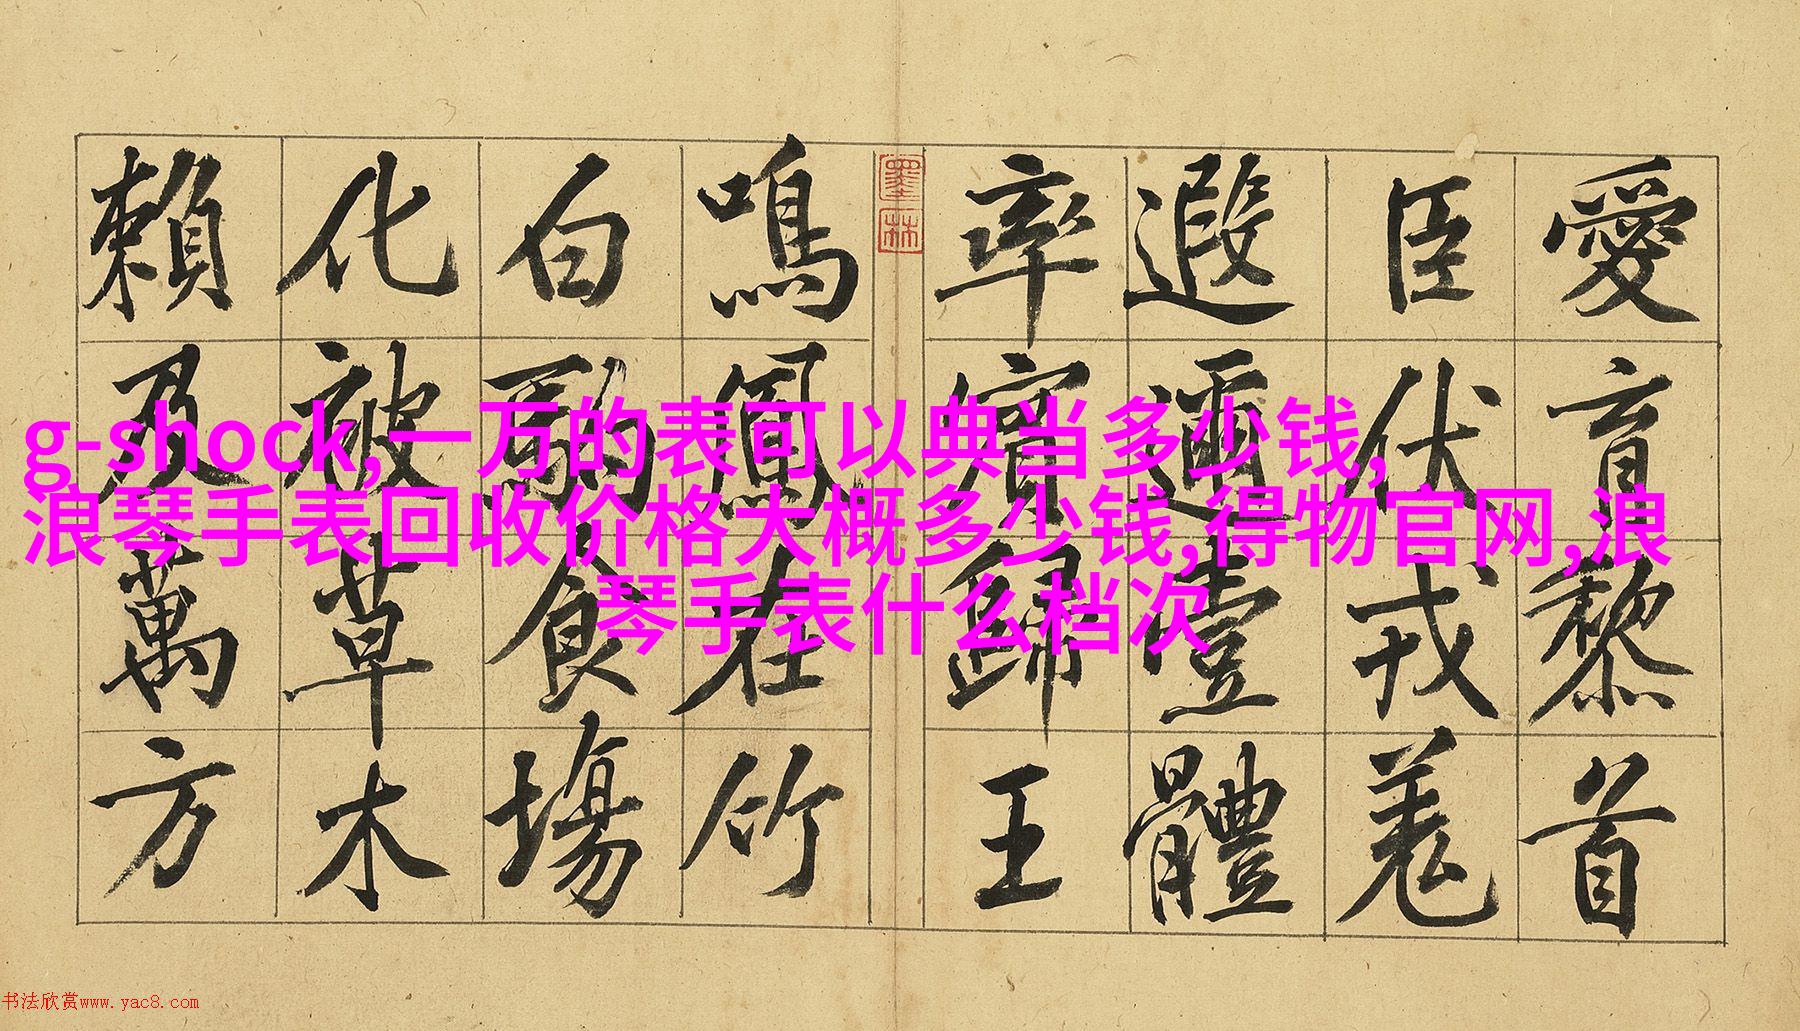 愛育黎首
臣伏戎羌
遐邇壹體
率賓歸王
墨林
鳴鳳在竹
白駒食場
化被草木
賴及萬方
g-shock,一万的表可以典当多少钱,
浪琴手表回收价格大概多少钱,得物官网,浪
琴手表什么档次
书法欣赏www.yac8.com